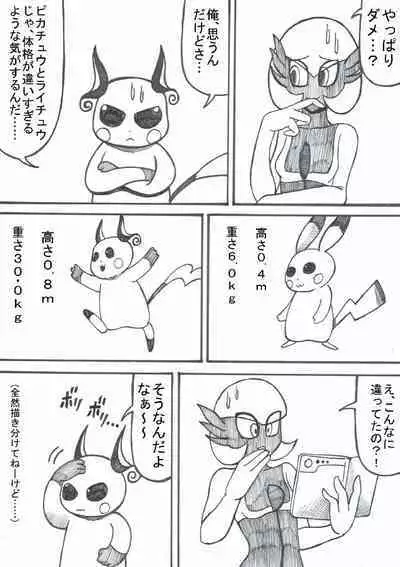 やっぱり
ダメ…?
俺、思うん
だけどさ…
ピカチュウとライチュウ
じゃ、体格が違いすぎる
ような気がするんだ……
高さ0.4m
重さ6.0kg
高さ0.8m
重さ30.0kg
え、こんなに
違ってたの?!
そうなんだよ
なぁ～～
ボボボ
(全然描き分けてねーけど……)